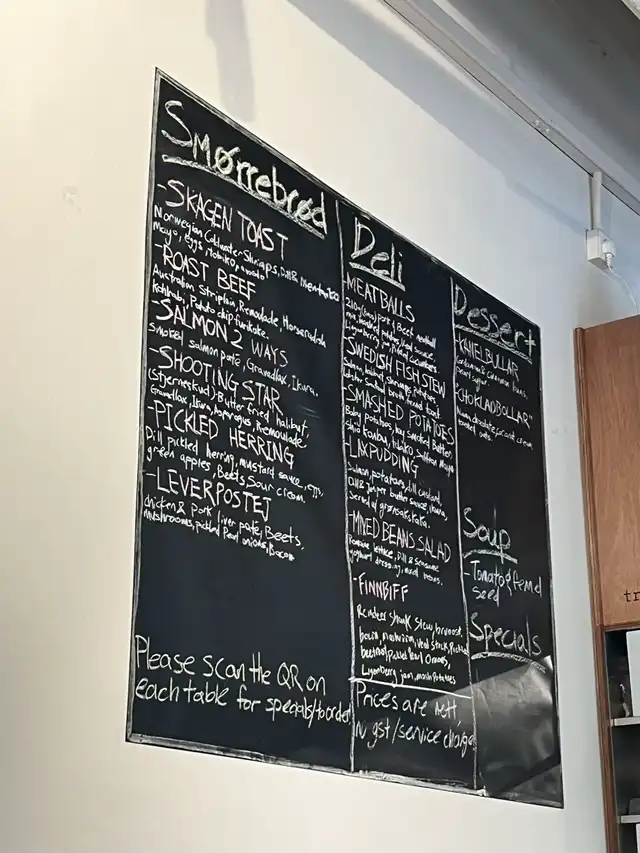 Smørrebrød
-SKAGEN TOAST
Norwegian Coldwater Shrimps, Dill &
Mayo, eggs, Tobiko,
-ROAST BEEF
Australian Striploin, Remoulade, Horseradish
Kohlrabi, Potato chip furikake.
-SALMON 2 WAYS
Smoked salmon paté, Gravadlax, Ikura.
-SHOOTING STAR
(Stjerneskud) Butter fried halibut,
Gravadlax, Ikura, Asparagus, Remoulade
-PICKLED HERRING
Dill pickled herring, mustard sauce, eggs,
green apples, Beets, Sour cream.
-LEVERPOSTEJ
chicken & pork liver paté, Beets,
Mushrooms, pickled Pearl onions, Bacon
Please scan the QR on
each table for specials/to order
Deli
MEATBALLS
Pork & Beef meatball
-SWEDISH FISH STEW
-SMASHED POTATOES
Baby potatoes, Smoked Butter,
Shio Kombu, tobiko, Mayo
-LAXPUDDING
Salmon, potatoes, dill custard,
butter sauce,
-MIXED BEANS SALAD
lettuce, Dill &
yoghurt dressing, mixed beans.
-FINNBIFF
Reindeer shank Stew
bacon, mushroom, Veal Stock, Pickled
Pearl Onions,
Lingonberry jam, mash Potatoes
Prices are nett,
no gst/service charge
Dessert
-KANELBULLAR
-CHOKLADBOLLAR
Soup
Tomato & fennel
seed
Specials
tr